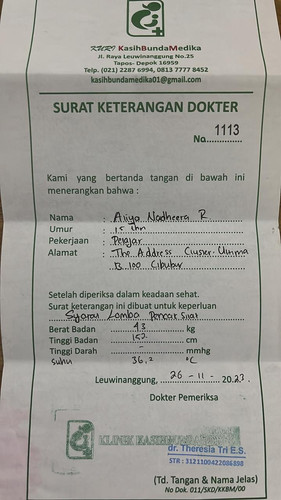 KasihBundaMedika
Jl. Raya Leuwinanggung No.25
Tapos- Depok 16959
Telp. (021) 2287 6994, 0813 7777 8452
kasihbundamedika01@gmail.com
SURAT KETERANGAN DOKTER
No. 1113
Kami yang bertanda tangan di bawah ini
menerangkan bahwa :
Nama : Aliya Nadheera R
Umur : 15 thn
Pekerjaan : Pelajar
Alamat : The Address
B 100 Cibubur
Setelah diperiksa dalam keadaan sehat.
Surat keterangan ini dibuat untuk keperluan
Syarat Lomba Pencak Silat
Berat Badan : 43 kg
Tinggi Badan : 152 cm
Tinggi Darah : - mmhg
Suhu 36,2 °C
Leuwinanggung, 26 - 11 - 2023
Dokter Pemeriksa
KLINIK KASIH
dr. Theresia Tri E.S.
STR : 3121100422086898
(Td. Tangan & Nama Jelas)
No Dok. 011/SKD/KKBM/00